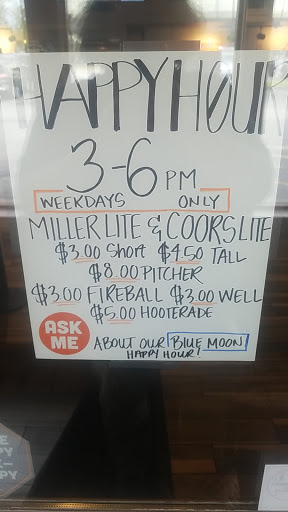 HAPPY HOUR
3-6 PM
WEEKDAYS ONLY
MILLER LITE & COORS LITE
$3.00 Short $4.50 TALL
$8.00 PITCHER
$3.00 FIREBALL $3.00 WELL
$5.00 HOOTERADE
ASK
ME
ABOUT OUR BLUE MOON
HAPPY HOUR!